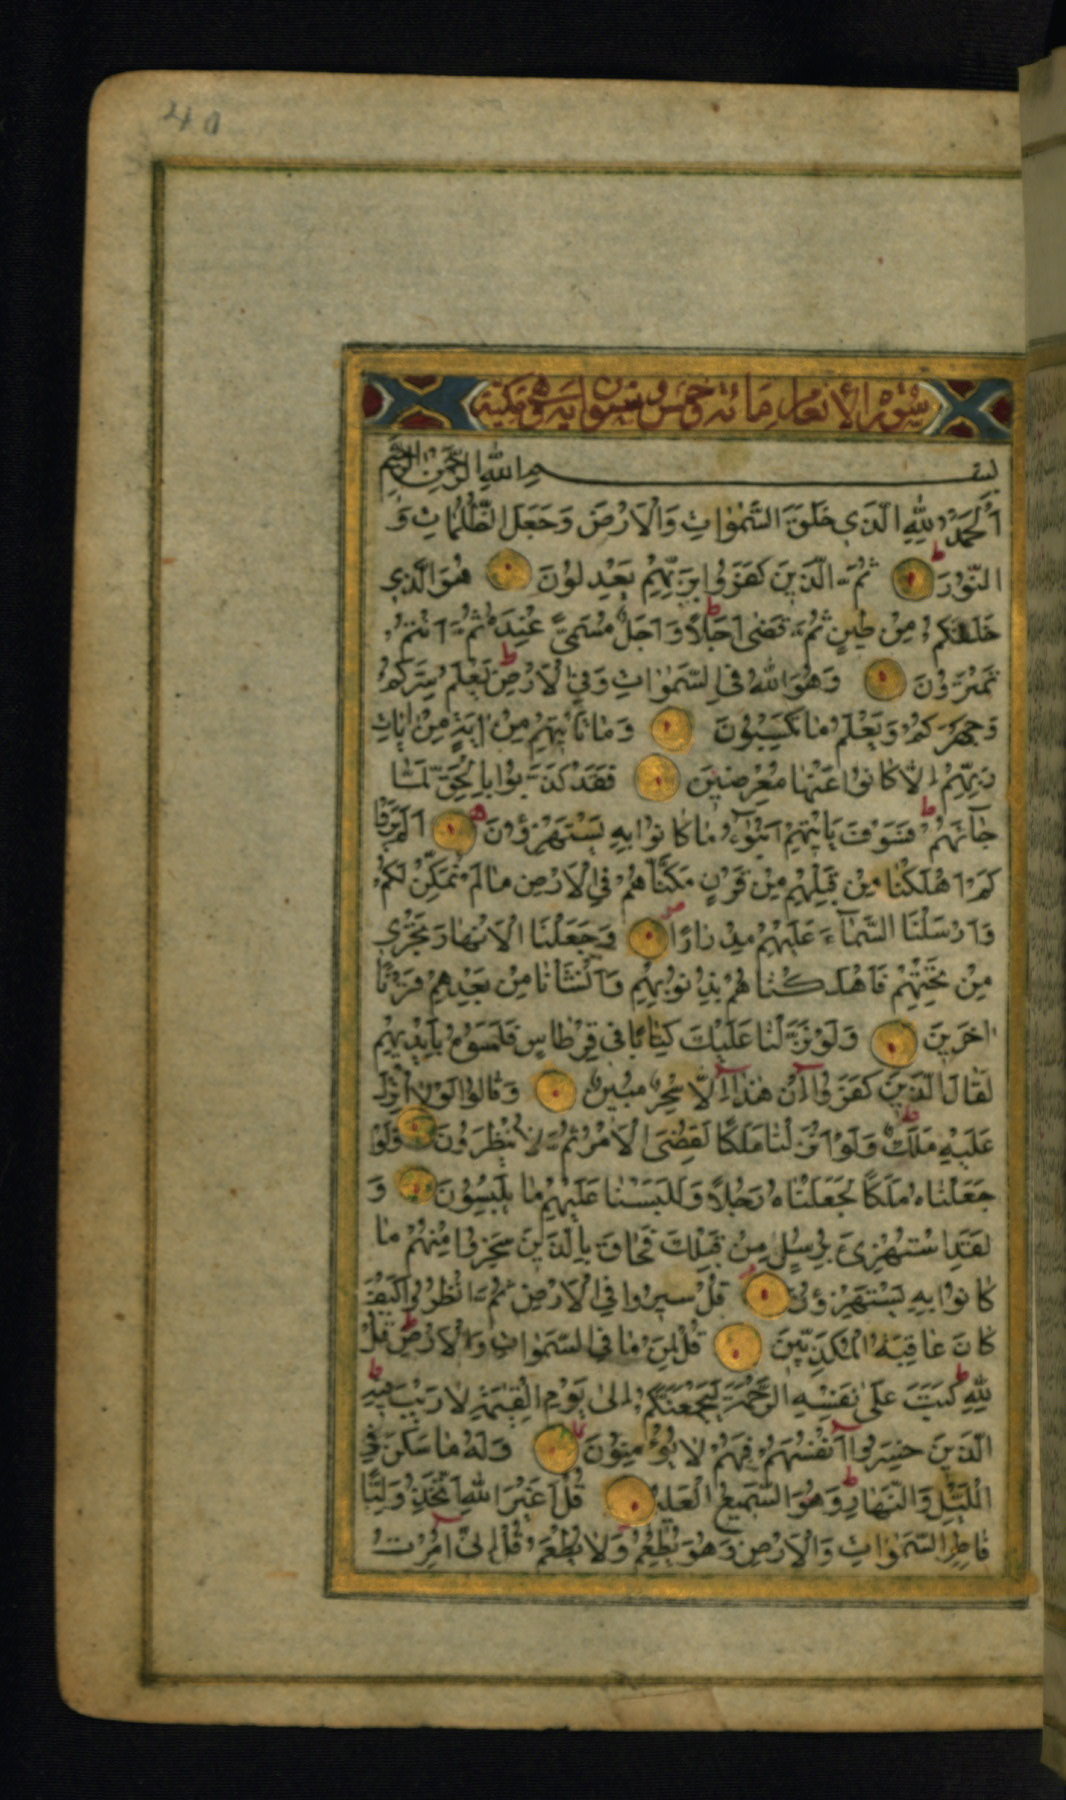 40
سورة الأنعام مائة وخمس وستون آية وهي مكية
بسم الله الرحمن الرحيم
اَلْحَمْدُ لِلّٰهِ الَّذي خَلَقَ السَّمٰوٰاتِ وَالْاَرْضَ وَجَعَلَ الظُّلُمٰاتِ وَ
النُّورَ ثُمَّ الَّذينَ كَفَرُوا بِرَبِّهِمْ يَعْدِلُونَ هُوَ الَّذي
خَلَقَكُمْ مِنْ طينٍ ثُمَّ قَضىٰ اَجَلاً وَاَجَلٌ مُسَمىًّ عِنْدَهُ ثُمَّ اَنْتُمْ
تَمْتَرُونَ وَهُوَ اللهُ فِي السَّمٰوٰاتِ وَفِي الْاَرْضِ يَعْلَمُ سِرَّكُمْ
وَجَهْرَكُمْ وَيَعْلَمُ مٰا تَكْسِبُونَ وَمٰا تَأْتيهِمْ مِنْ اٰيَةٍ مِنْ اٰيٰاتِ
رَبِّهِمْ اِلّٰا كٰانُوا عَنْهٰا مُعْرِضينَ فَقَدْ كَذَّبُوا بِالْحَقِّ لَمّٰا
جٰآءَهُمْ فَسَوْفَ يَأْتيهِمْ اَنْبٰٓؤُا مٰا كٰانُوا بِهِ يَسْتَهْزِؤُنَ اَلَمْ يَرَوْا
كَمْ اَهْلَكْنٰا مِنْ قَبْلِهِمْ مِنْ قَرْنٍ مَكَّنّٰاهُمْ فِي الْاَرْضِ مٰا لَمْ نُمَكِّنْ لَكُمْ
وَاَرْسَلْنَا السَّمٰآءَ عَلَيْهِمْ مِدْرٰارًا وَجَعَلْنَا الْاَنْهٰارَ تَجْري
مِنْ تَحْتِهِمْ فَاَهْلَكْنٰاهُمْ بِذُنُوبِهِمْ وَاَنْشَأْنٰا مِنْ بَعْدِهِمْ قَرْنًا
اٰخَرينَ وَلَوْ نَزَّلْنٰا عَلَيْكَ كِتٰابًا في قِرْطٰاسٍ فَلَمَسُوهُ بِاَيْديهِمْ
لَقٰالَ الَّذينَ كَفَرُوا اِنْ هٰذٰا اِلّٰا سِحْرٌ مُبينٌ وَقٰالُوا لَوْلٰا اُنْزِلَ
عَلَيْهِ مَلَكٌ وَلَوْ اَنْزَلْنٰا مَلَكًا لَقُضِيَ الْاَمْرُ ثُمَّ لٰا يُنْظَرُونَ وَلَوْ
جَعَلْنٰاهُ مَلَكًا لَجَعَلْنٰاهُ رَجُلاً وَلَلَبَسْنٰا عَلَيْهِمْ مٰا يَلْبِسُونَ وَ
لَقَدِ اسْتُهْزِئَ بِرُسُلٍ مِنْ قَبْلِكَ فَحٰاقَ بِالَّذينَ سَخِرُوا مِنْهُمْ مٰا
كٰانُوا بِهِ يَسْتَهْزِؤُنَ قُلْ سيرُوا فِي الْاَرْضِ ثُمَّ انْظُرُوا كَيْفَ
كٰانَ عٰاقِبَةُ الْمُكَذِّبينَ قُلْ لِمَنْ مٰا فِي السَّمٰوٰاتِ وَالْاَرْضِ قُلْ
لِلّٰهِ كَتَبَ عَلىٰ نَفْسِهِ الرَّحْمَةَ لَيَجْمَعَنَّكُمْ اِلىٰ يَوْمِ الْقِيٰمَةِ لٰا رَيْبَ فيهِ
الَّذينَ خَسِرُوا اَنْفُسَهُمْ فَهُمْ لٰا يُؤْمِنُونَ وَلَهُ مٰا سَكَنَ فِي
الْلَيْلِ وَالنَّهٰارِ وَهُوَ السَّميعُ الْعَليمُ قُلْ اَغَيْرَ اللهِ اَتَّخِذُ وَلِيًّا
فٰاطِرِ السَّمٰوٰاتِ وَالْاَرْضِ وَهُوَ يُطْعِمُ وَلٰا يُطْعَمُ قُلْ اِنّي اُمِرْتُ